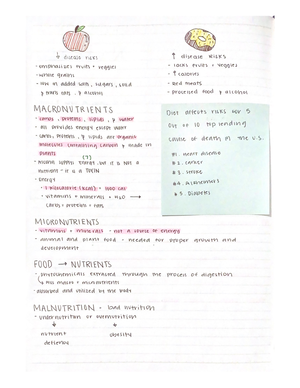 ↓ disease risks
- emphasizes fruits + veggies
- whole grains
- low in added salts, sugars, solid
& trans fats, & alcohol
↑ disease risks
- lacks fruits + veggies
- ↑ calories
- red meats
- processed food & alcohol
MACRONUTRIENTS
- carbs, proteins, lipids, & water
- all provides energy except water
- carbs, proteins, & lipids are organic
molecules containing carbon & made in
plants
(7)
- alcohol supplies energy but it is not a
nutrient - it is a TOXIN
- energy
- 1 kilocalorie (kcal) = 1000 cal
- vitamins + minerals + H₂O →
carbs + proteins + fats
Diet affects risks for 5
out of 10 top leading
cause of death in the U.S.
#1. heart disease
#2. cancer
#3. stroke
#4. alzheimers
#5. diabetes
MICRONUTRIENTS
- vitamins + minerals - not a source of energy
- animal and plant food - needed for proper growth and
development
FOOD → NUTRIENTS
- phytochemicals extracted through the process of digestion
↳ all macro + micronutrients
- absorbed and utilized by the body
MALNUTRITION - bad nutrition
- undernutrition or overnutrition
nutrient
deficiency
obesity